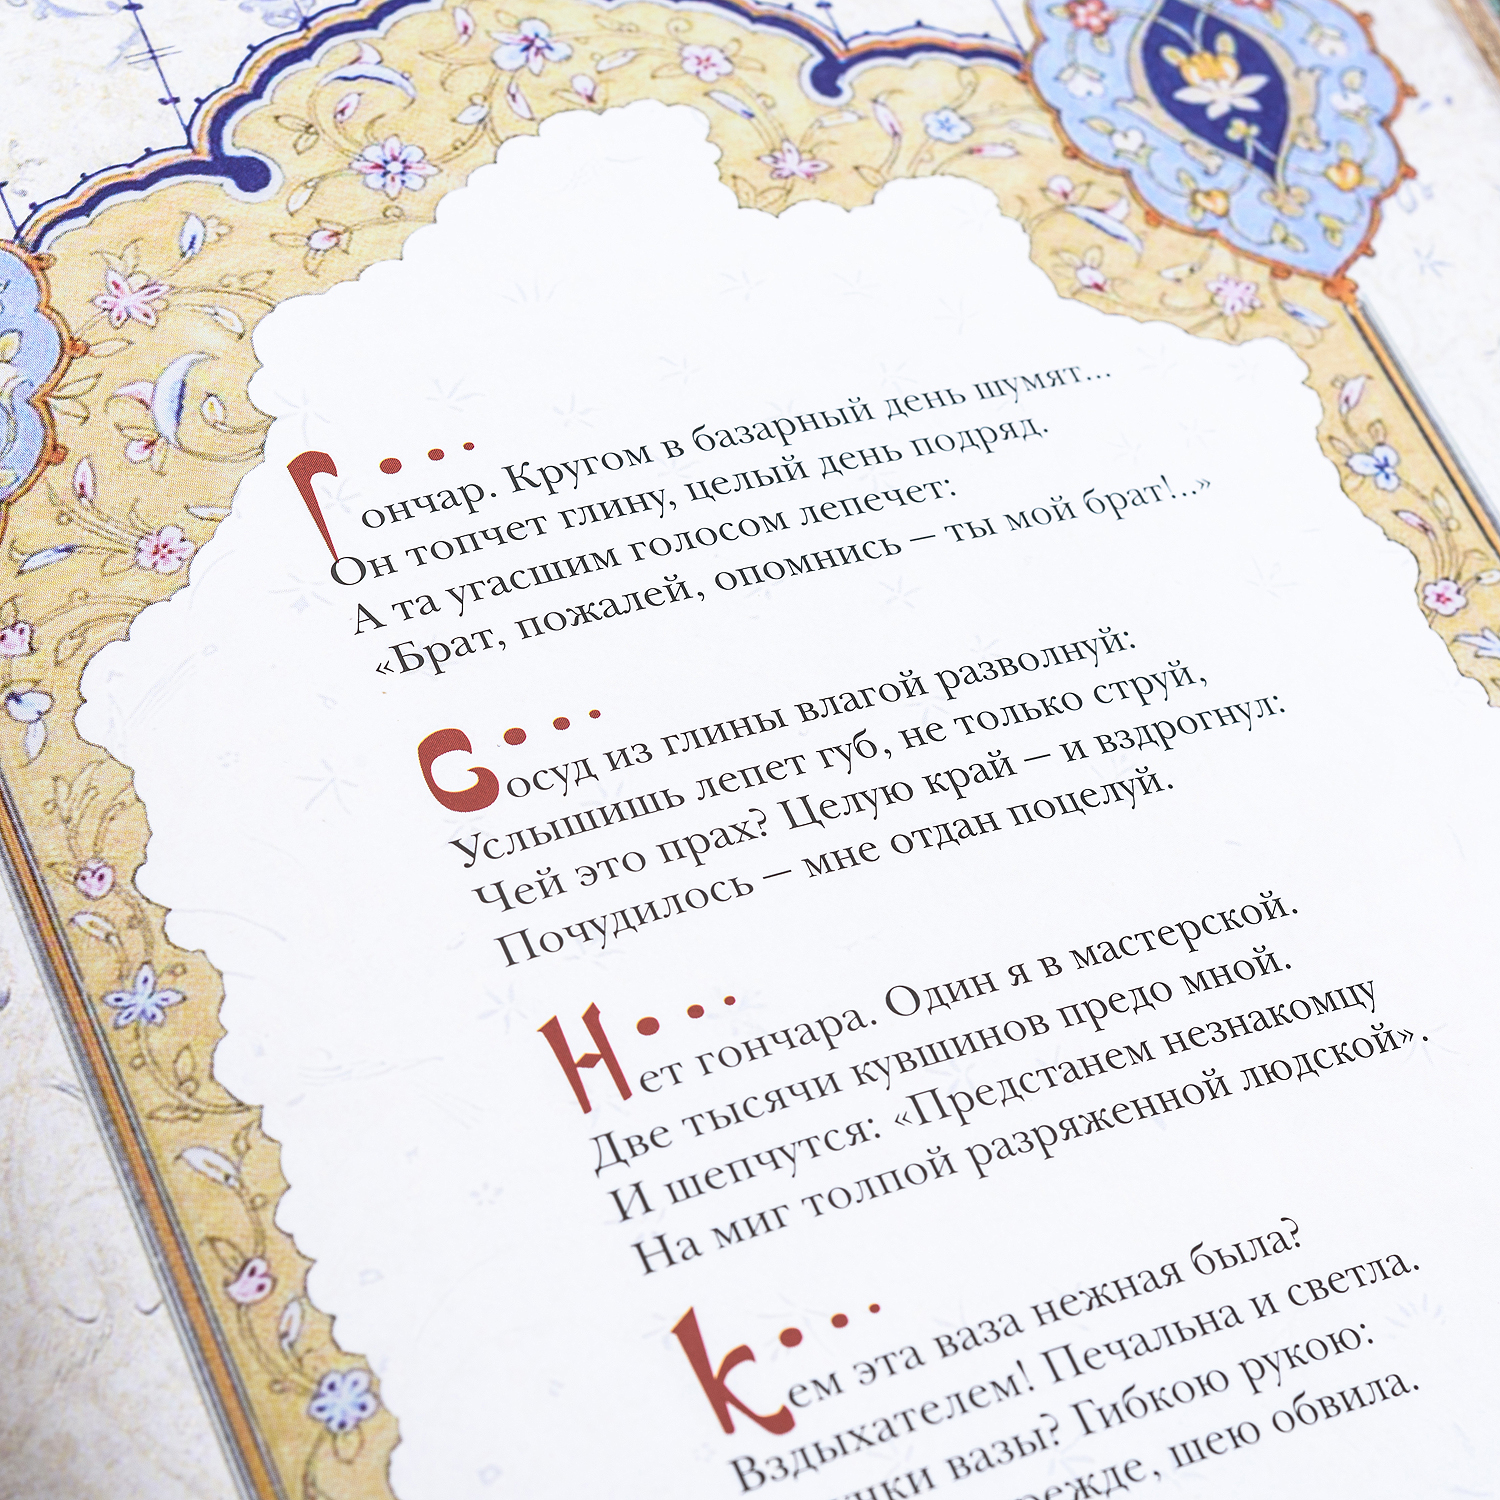 Гончар. Кругом в базарный день шумят...
Он топчет глину, целый день подряд.
А та угасшим голосом лепечет:
«Брат, пожалей, опомнись – ты мой брат!..»
Сосуд из глины влагой разволнуй:
Услышишь лепет губ, не только струй,
Чей это прах? Целую край – и вздрогнул:
Почудилось – мне отдан поцелуй.
Нет гончара. Один я в мастерской.
Две тысячи кувшинов предо мной.
И шепчутся: «Предстанем незнакомцу
На миг толпой разряженной людской».
Кем эта ваза нежная была?
Вздыхателем! Печальна и светла.
вазы? Гибкою рукою:
шею обвила.